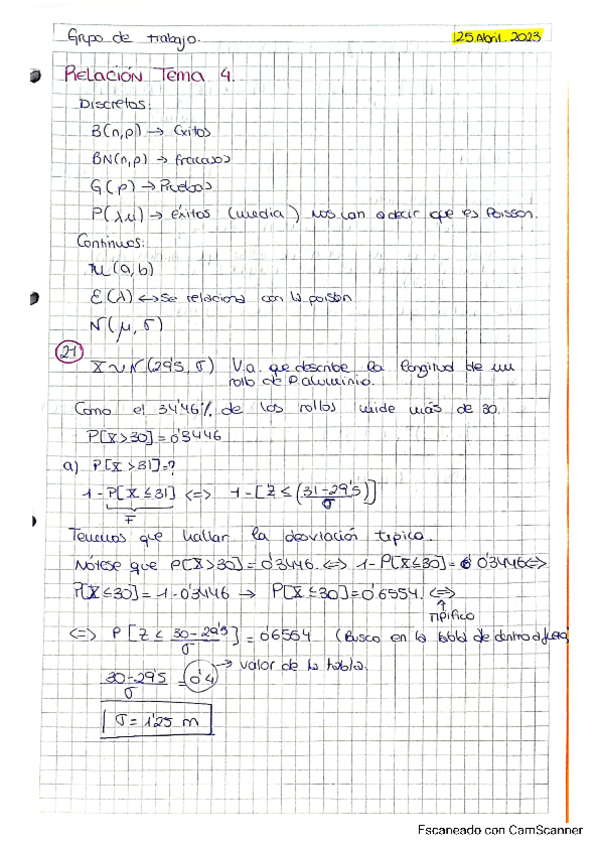 Grupo de trabajo.
25 Abril. 2023
Relación Tema 4.
Discretos:
B(n,p) → Éxitos
BN(n,p) → Fracasos
G(p) → Pruebas
P(λμ) → éxitos (media) nos van a decir que es Poisson.
Continuos:
U(a,b)
E(λ) ↔ Se relaciona con la poison
N(μ, σ)
21
X ~ N(29'5, σ) V.a. que describe la longitud de un
rollo de P. aluminio.
Como el 34'46% de los rollos mide más de 30.
P[X>30] = 0'3446
a) P[X>31]=?
1 - P[X≤31] <=> 1 - [Z ≤ (31-29'5)/σ)]
F
Tenemos que hallar la desviación típica.
Nótese que P[X>30] = 0'3446. <=> 1-P[X≤30] = 0'3446 <=>
P[X≤30] = 1-0'3446 → P[X≤30] = 0'6554. <=>
↑
Tipifico
<=> P[Z ≤ (30-29'5)/σ] = 0'6554 (Busco en la tabla de dentro a fuera)
(30-29'5)/σ = 0'4 → valor de la tabla.
σ = 1'25 m
Escaneado con CamScanner